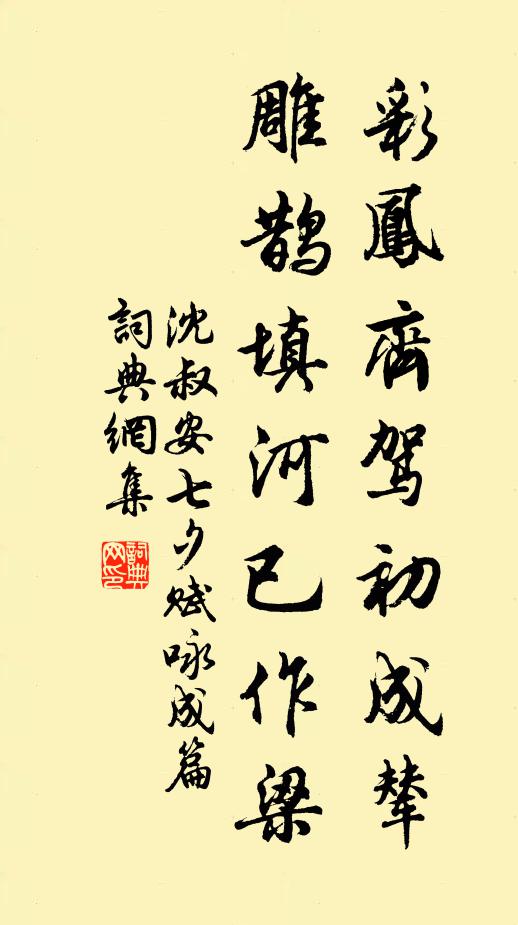 彩鳳齊駕初成輦
雕鵲填河已作梁
沈叔安七夕賦咏成篇
詞典網集
詞典網印